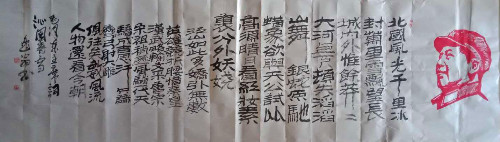 北國風光千里冰
封萬里雪飄望長
城內外惟餘莽〻
大河上下頓失滔滔
山舞銀蛇原馳
蠟象欲與天公試比
高須晴日看紅裝素
裹分外妖嬈
江山如此多嬌引無數
英雄競折腰惜秦皇
漢武略輸文采唐
宗宋祖稍遜風騷一代天
驕成吉思汗只識
彎弓射大雕
俱往矣數風流
人物還看今朝
毛澤東主席詞
沁園春雪